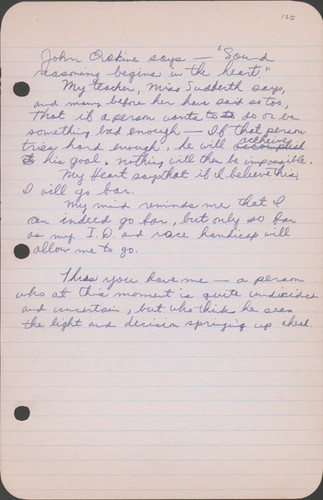 125
John Erskine says — "Sound
reasoning begins in the heart."
My teacher, Miss Sudderth says,
and many before her have said so too,
that if a person wants to do or be
something bad enough — If that person
tries hard enough, he will achieve
to his goal. nothing will then be impossible.
My Heart says that if I believe this,
I will go far.
My mind reminds me that I
can indeed go far, but only so far
as my I.D. and race handicap will
allow me to go.
Thus you have me — a person
who at this moment is quite undecided
and uncertain, but who thinks he sees
the light and decision springing up ahead.